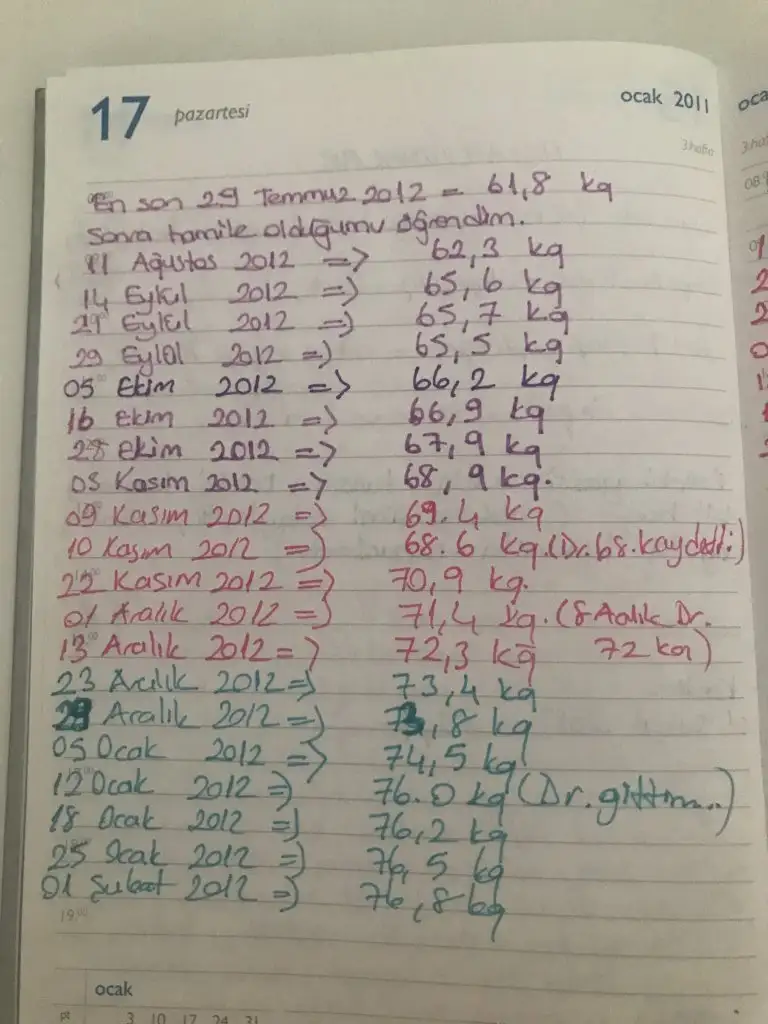 17 pazartesi ocak 2011 oca
3.hafta 3.ha
En son 29 Temmuz 2012 = 61,8 kg
Sonra hamile olduğumu öğrendim.
11 Ağustos 2012 => 62,3 kg
14 Eylül 2012 => 65,6 kg
21 Eylül 2012 => 65,7 kg
29 Eylül 2012 => 65,5 kg
05 Ekim 2012 => 66,2 kg
16 Ekim 2012 => 66,9 kg
28 Ekim 2012 => 67,9 kg
05 Kasım 2012 => 68,9 kg.
09 Kasım 2012 => 69.4 kg
10 Kasım 2012 => 68.6 kg. (Dr. 68. kaydetti)
22 Kasım 2012 => 70,9 kg.
01 Aralık 2012 => 71,4 kg. (8 Aralık Dr.
13 Aralık 2012 => 72,3 kg 72 kg)
23 Aralık 2012 => 73,4 kg
29 Aralık 2012 => 73,8 kg
05 Ocak 2012 => 74,5 kg
12 Ocak 2012 => 76.0 kg (Dr. gittim..)
18 Ocak 2012 => 76,2 kg
25 Ocak 2012 => 76,5 kg
01 Şubat 2012 => 76,8 kg
19.00
ocak
pt 3 10 17 24 31